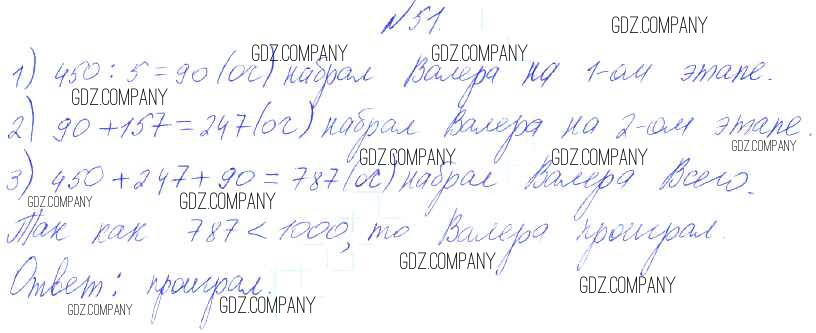 №51.
GDZ.COMPANY
GDZ.COMPANY GDZ.COMPANY
1) 450 : 5 = 90 (ог) набрал Валера на 1-ом этапе.
GDZ.COMPANY
2) 90 + 157 = 247 (ог) набрал Валера на 2-ом этапе.
GDZ.COMPANY GDZ.COMPANY GDZ.COMPANY
3) 450 + 247 + 90 = 787 (ос) набрал Валера Всего.
GDZ.COMPANY GDZ.COMPANY GDZ.COMPANY
Так как 787 < 1000, то Валера проиграл.
GDZ.COMPANY
Ответ: проиграл.
GDZ.COMPANY GDZ.COMPANY GDZ.COMPANY